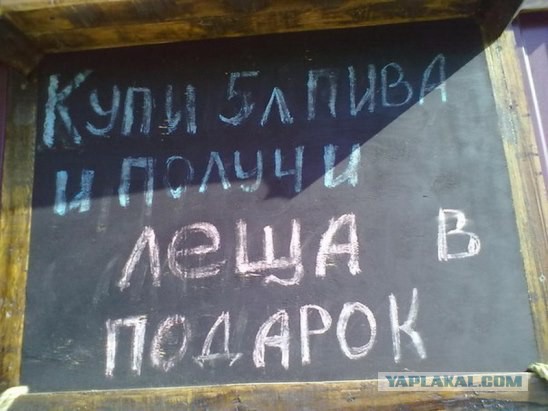 Купи 5л пива
и получи
леща в
подарок
YAPLAKAL.COM